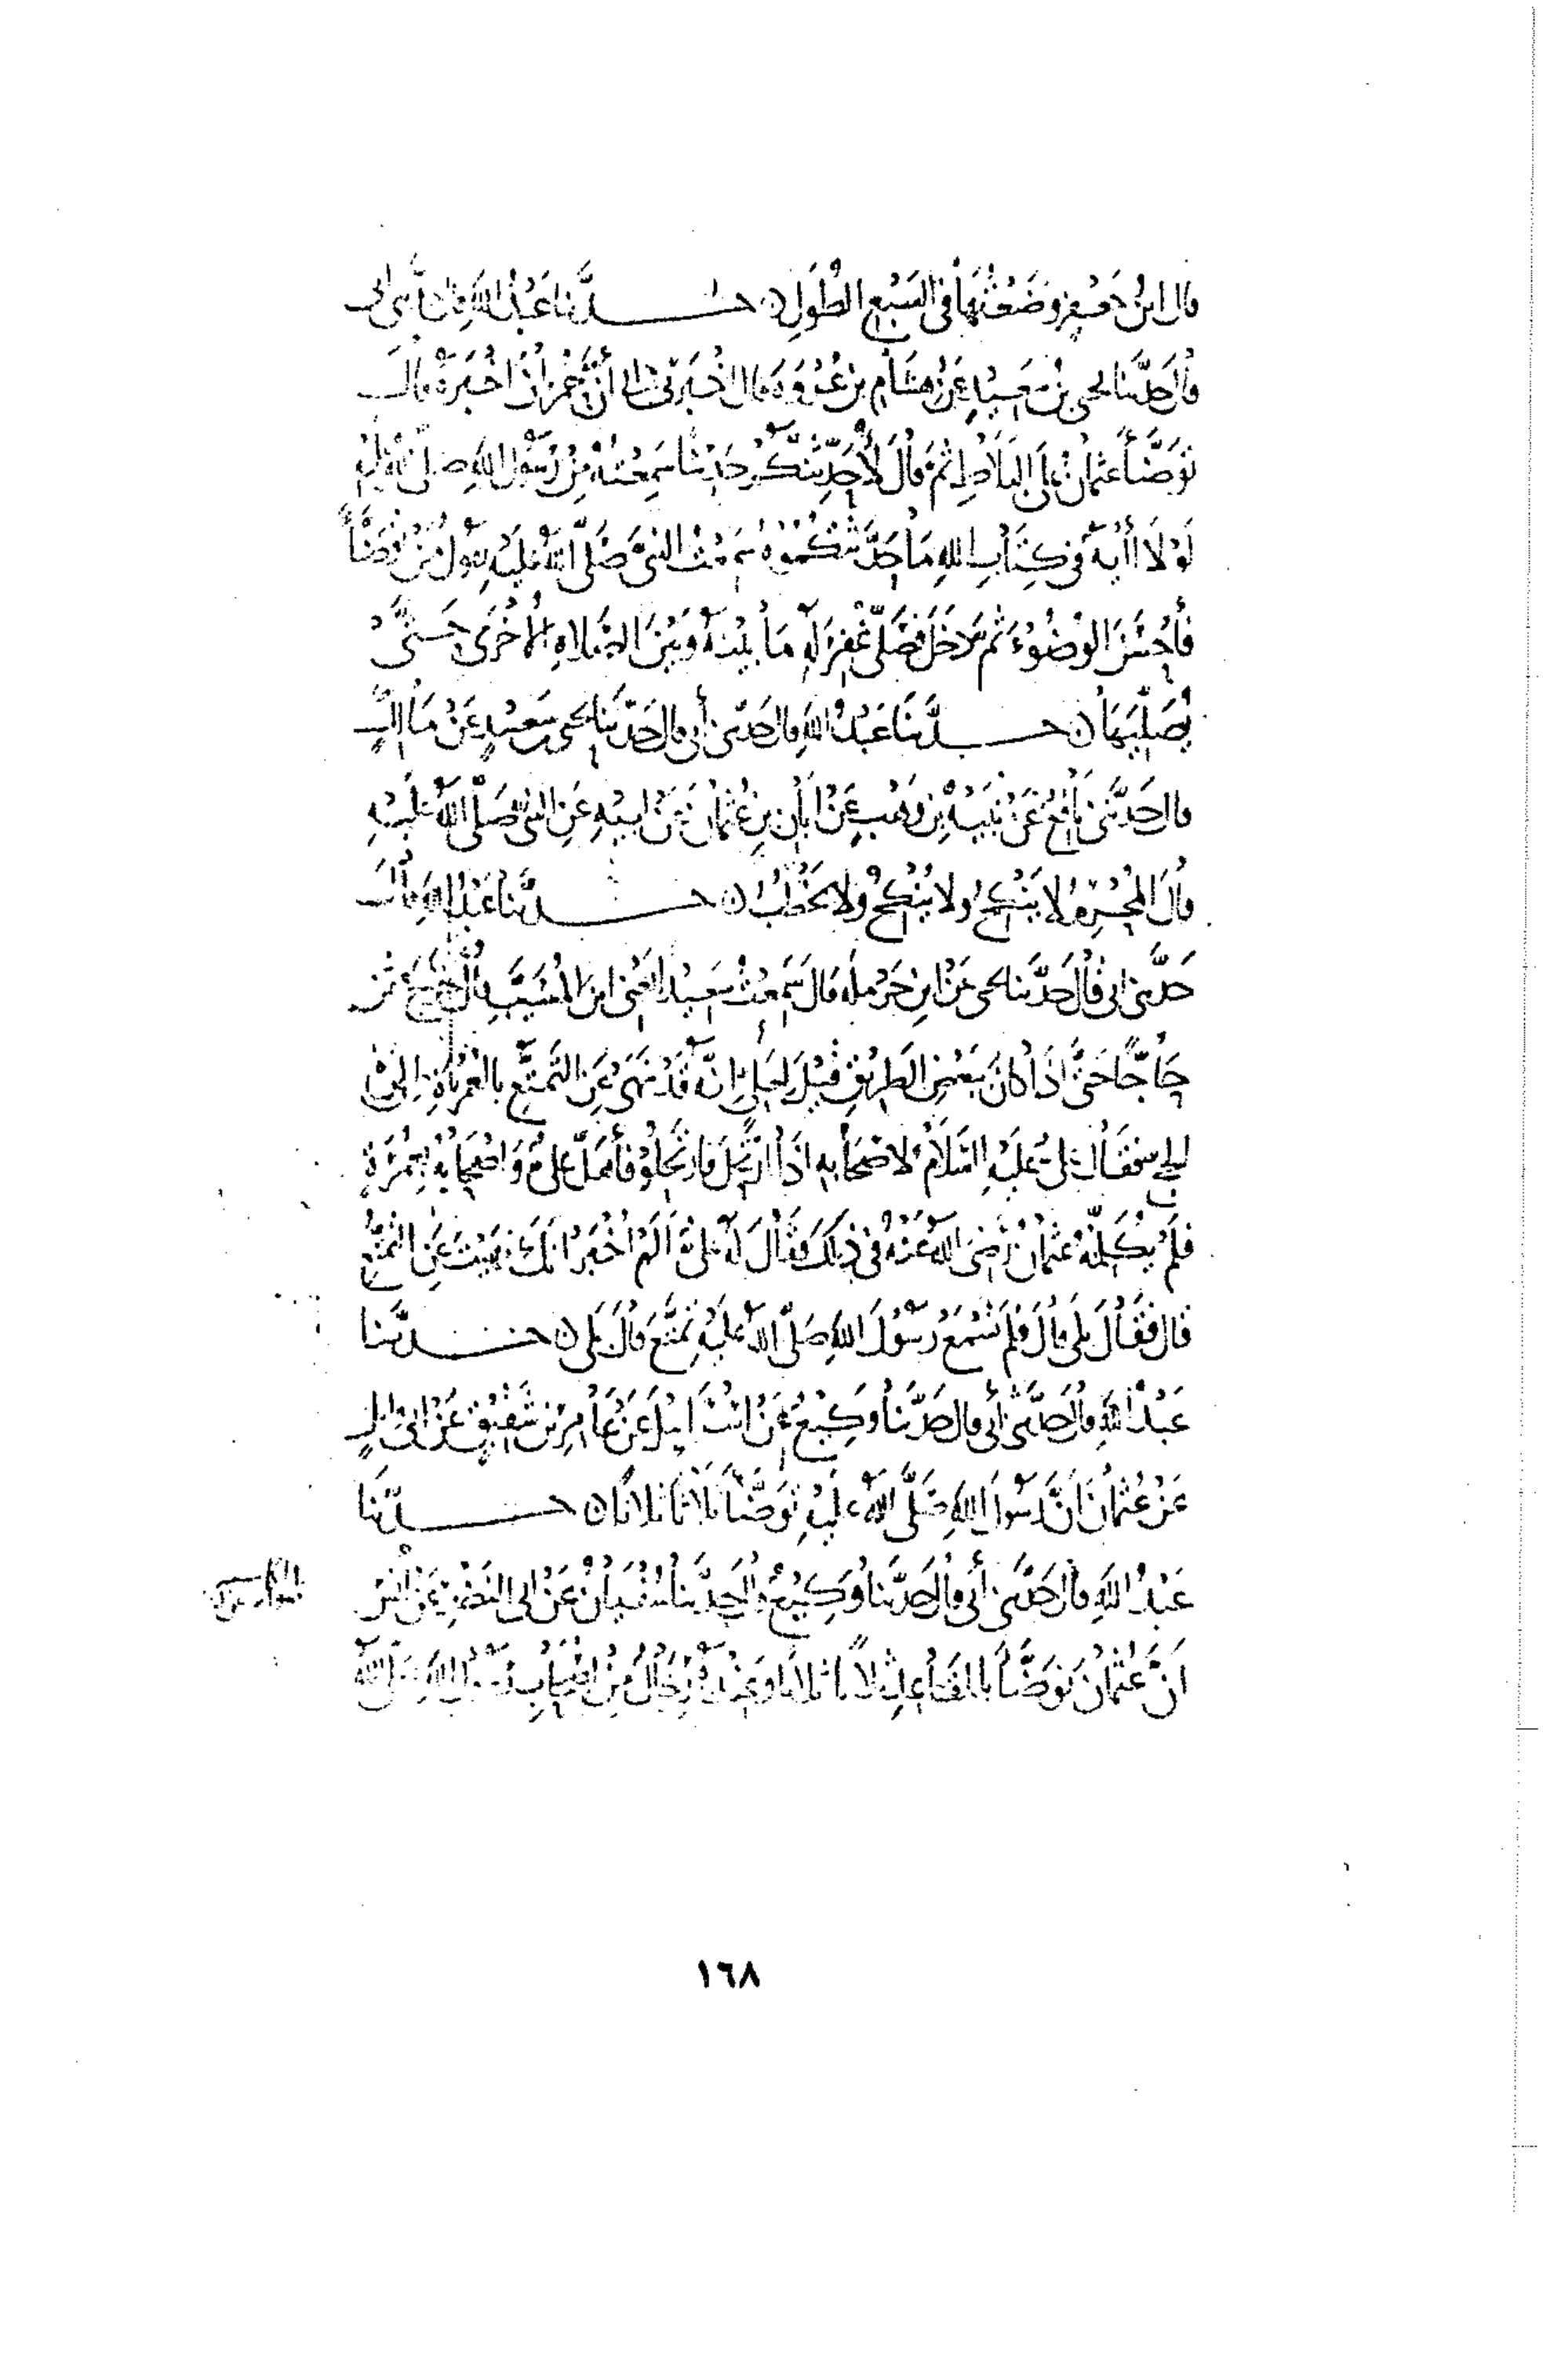 قال ابن جعفر وَضَعْتُهَا في السَّبْعِ الطُّوَلِ ن حـــدَّثنا عَبْدُ اللهِ قال حدَّثني أبي
قالَ حَدَّثنا يحيى بنُ سَعِيدٍ عَنْ هِشَامِ بنِ عُرْوَةَ قال أخْبَرَني أبي أنَّ حُمْرَانَ أخْبَرَهُ قالَ
تَوَضَّأَ عثمانُ على البَلَاطِ ثُمَّ قالَ لأُحَدِّثَنَّكُمْ حَدِيثًا سَمِعْتُهُ مِنْ رَسُولِ اللهِ صلى الله عليه
لَوْلَا آيَةٌ في كِتَابِ اللهِ مَا حَدَّثْتُكُمُوهُ سَمِعْتُ النبيَّ صَلَّى اللهُ عليْهِ يقولُ مَنْ تَوَضَّأَ
فَأَحْسَنَ الوُضُوءَ ثم دَخَلَ فَصَلَّى غُفِرَ لَهُ مَا بَيْنَهُ وَبَيْنَ الصَّلاةِ الأُخْرَى حَتَّى
يُصَلِّيَهَا ن حـــدَّثَنَا عَبْدُ اللهِ قال حَدَّثني أبي قال حَدَّثَنا يحيى بن سَعِيدٍ عَنْ مَالِكٍ
قال حَدَّثَنِي نَافِعٌ عَنْ نُبَيْهِ بنِ وَهْبٍ عَنْ أَبَانَ بنِ عُثْمَانَ عَنْ أبيْهِ عَنِ النبي صَلَّى اللهُ عَلَيْهِ
قالَ المُحْرِمُ لا يَنْكِحُ ولا يُنْكِحُ ولا يَخْطُبُ ن حـــدَّثنا عَبْدُ اللهِ قالَ
حَدَّثني أبي قالَ حَدَّثَنا يحيى عَنْ ابنِ حَرْمَلَةَ قالَ سَمِعْتُ سَعِيدًا يَعْني ابنَ المُسَيَّبِ قالَ خَرَجَ عثمن
حَاجًّا حَتَّى إذَا كانَ بِبَعْضِ الطَّرِيقِ قِيْلَ لِعَلِيٍّ إنَّهُ قَدْ نَهَى عَنِ التَّمَتُّعِ بالعُمْرَةِ إلى
الحج فقَالَ علي عليهِ السَّلامُ لأصْحَابِهِ إذَا ارْتَحَلَ فارْتَحِلُوْا فأَهَلَّ عليٌّ وَأصْحَابُهُ بِعُمْرَةٍ
فلَمْ يُكَلِّمْهُ عثمانُ رَضِيَ اللهُ عَنْهُ في ذلِكَ فقَالَ لَهُ عليٌّ أَلَمْ أُخْبَرْ أنَّكَ نَهَيْتَ عَنِ التَّمَتُّعِ
قال فقَالَ بلى قالَ فلَمْ تَسْمَعْ رَسُولَ اللهِ صَلَّى اللهُ عليْهِ تَمَتَّعَ قالَ بَلَى ن حـــدَّثنا
عَبْدُ اللهِ قالَ حَدَّثني أبي قال حَدَّثَنَا وَكِيْعٌ عَنْ إسْرَائِيْلَ عَنْ عَامِرِ بْنِ شَقِيْقٍ عَنْ أبي وائلٍ
عَنْ عُثْمانَ أنَّ رَسُولَ اللهِ صَلَّى اللهُ عليْهِ تَوَضَّأَ ثَلاثًا ثَلاثًا ن حـــدَّثَنَا
عَبْدُ اللهِ قالَ حَدَّثني أبي قالَ حَدَّثَنا وَكِيْعٌ قالَ حَدَّثَنا سُفْيَانُ عَنْ أبي النَّضْرِ عَنْ أنَسٍ
أنَّ عُثْمانَ تَوَضَّأَ بالمَقَاعِدِ ثلاثًا ثلاثًا وَعِنْدَهُ رِجَالٌ مِنْ أصْحَابِ رَسُولِ اللهِ صَلَّى اللهُ
١٦٨